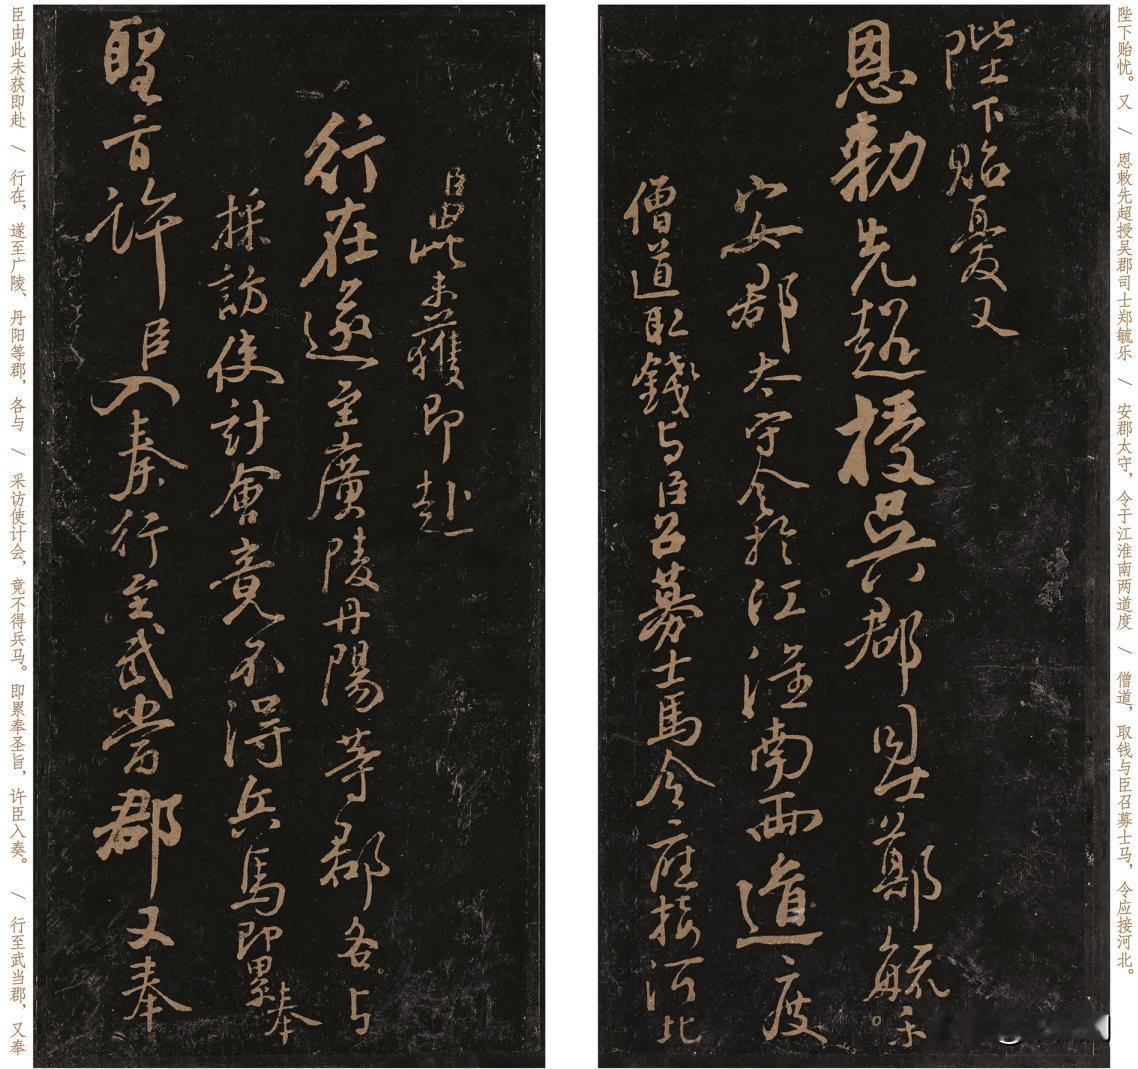 陛下贻忧。又 / 恩敕先超授吴郡司士郑毓乐 / 安郡太守，令于江淮南两道度 / 僧道，取钱与臣召募士马，令应接河北。
陛下贻憂又
恩勅先超授吴郡司士鄭毓乐
安郡太守令於江淮南两道度
僧道取錢与臣召募士馬令應接河北
臣由此未獲即赴
行在遂至廣陵丹陽等郡各与
採訪使計會竟不得兵馬即累奉
聖旨許臣入奏行至武當郡又奉
臣由此未获即赴 / 行在，遂至广陵、丹阳等郡，各与 / 采访使计会，竟不得兵马。即累奉圣旨，许臣入奏。 / 行至武当郡，又奉